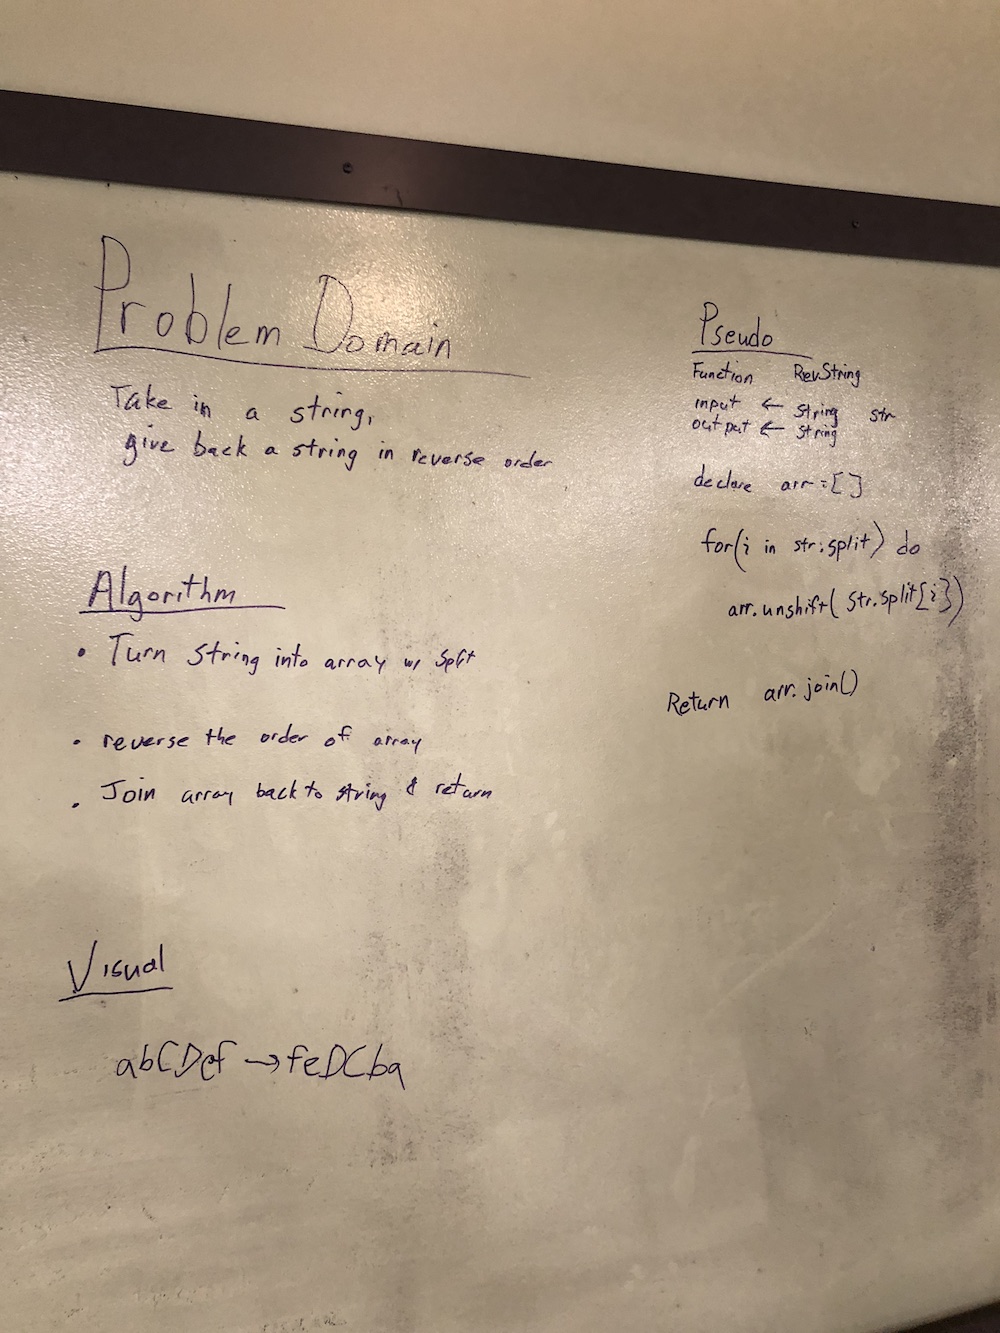 Problem Domain
Take in a string,
give back a string in reverse order
Algorithm
• Turn String into array w/ split
• reverse the order of array
• Join array back to string & return
Visual
abCDef → feDCba
Pseudo
Function RevString
input ← string str
output ← string
declare arr = []
for(i in str.split) do
arr.unshift(str.split[i])
Return arr.join()